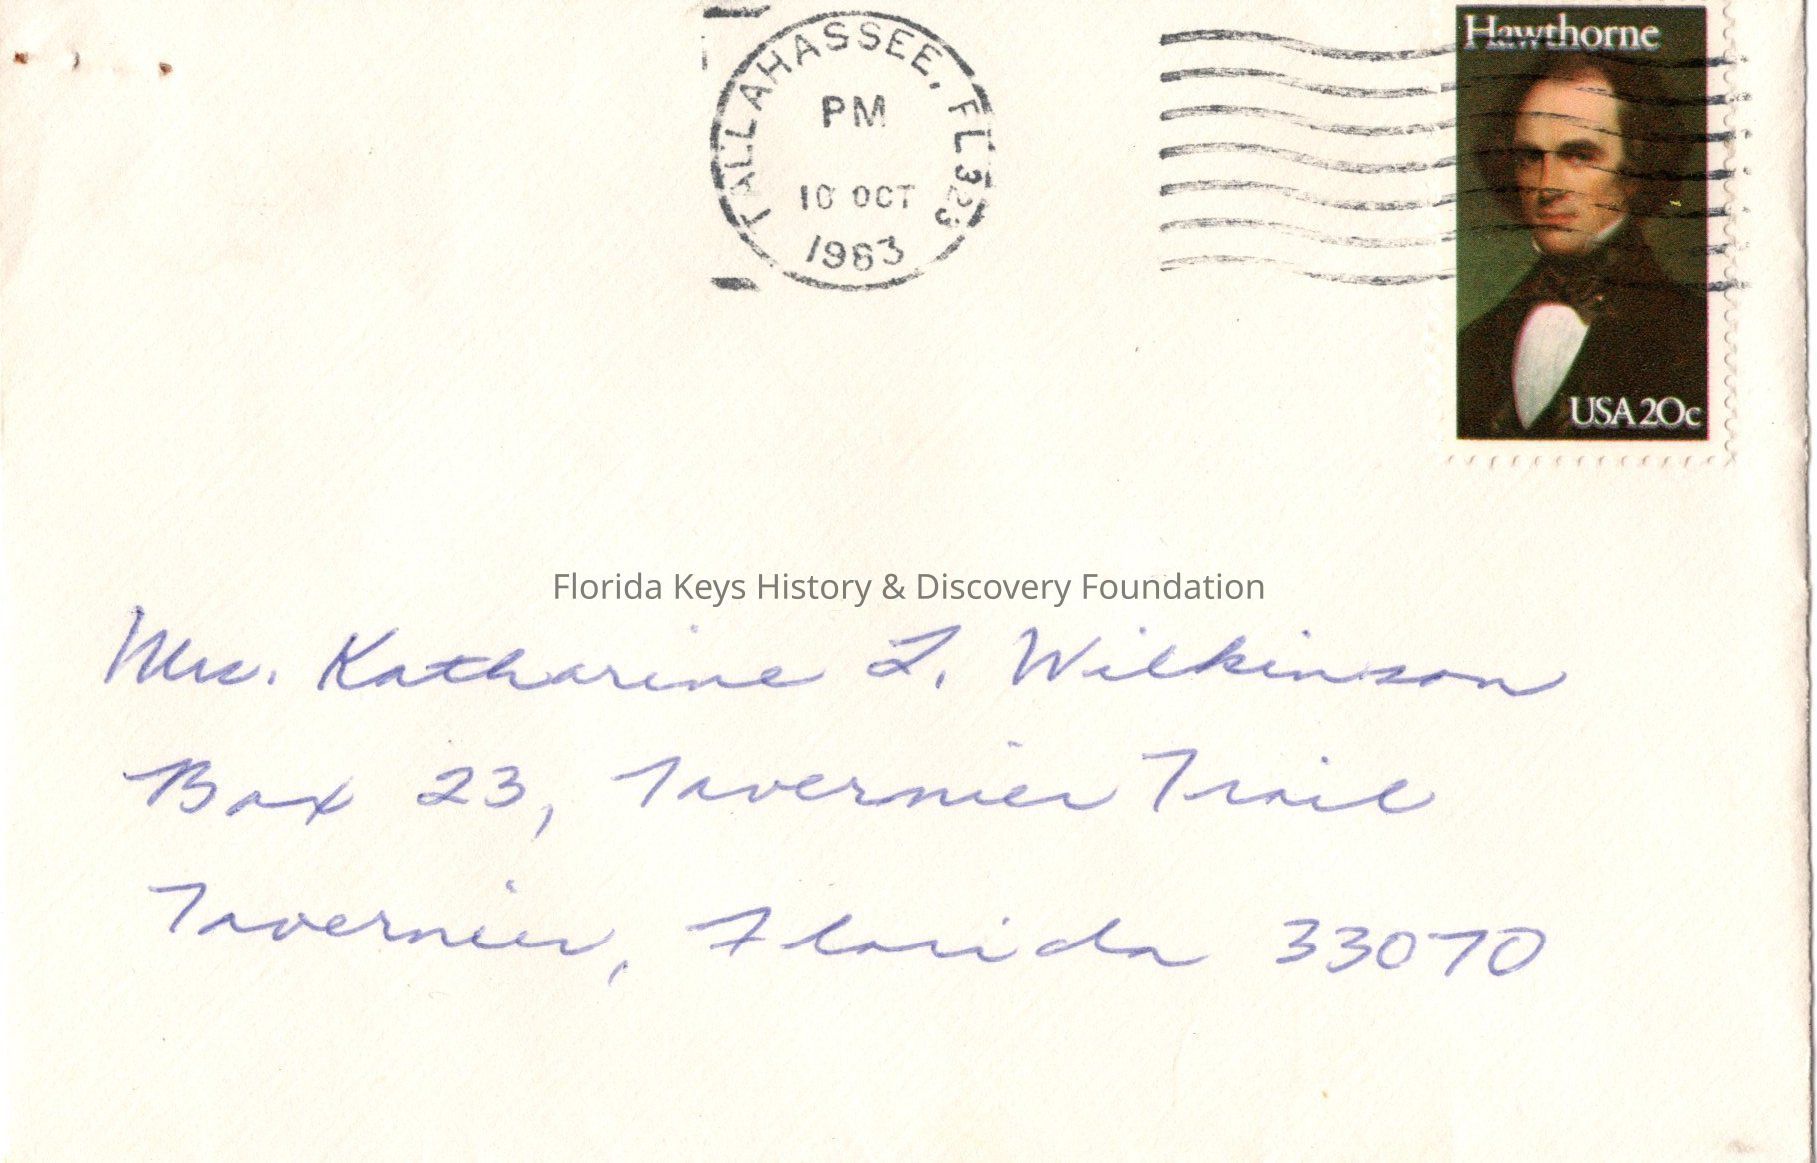 TALLAHASSEE, FL 323
PM
10 OCT
1983
Hawthorne
USA 20c
Florida Keys History & Discovery Foundation
Mrs. Katharine L. Wilkinson
Box 23, Tavernier Trail
Tavernier, Florida 33070